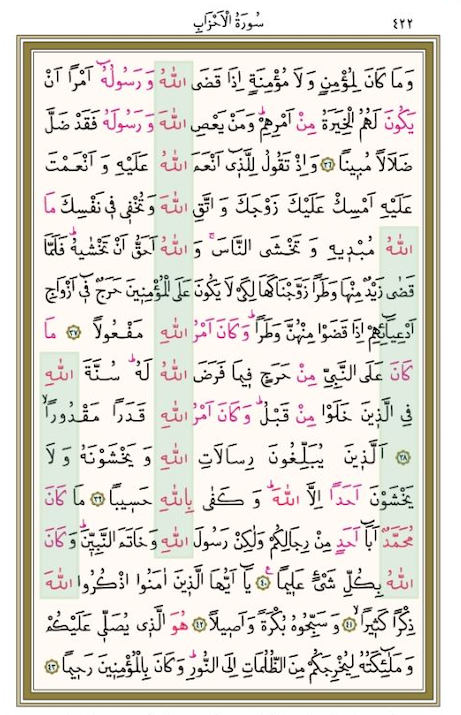 سُورَةُ الْاَحْزَابِ ٤٢٢
وَمَا كَانَ لِمُؤْمِنٍ وَلَا مُؤْمِنَةٍ اِذَا قَضَى اللّٰهُ وَرَسُولُهُٓ اَمْرًا اَنْ
يَكُونَ لَهُمُ الْخِيَرَةُ مِنْ اَمْرِهِمْۜ وَمَنْ يَعْصِ اللّٰهَ وَرَسُولَهُ فَقَدْ ضَلَّ
ضَلَالًا مُبٖينًا ﴿٣٦﴾ وَاِذْ تَقُولُ لِلَّذٖٓى اَنْعَمَ اللّٰهُ عَلَيْهِ وَاَنْعَمْتَ
عَلَيْهِ اَمْسِكْ عَلَيْكَ زَوْجَكَ وَاتَّقِ اللّٰهَ وَتُخْفٖى فٖى نَفْسِكَ مَا
اللّٰهُ مُبْدٖيهِ وَتَخْشَى النَّاسَۚ وَاللّٰهُ اَحَقُّ اَنْ تَخْشٰيهُۜ فَلَمَّا
قَضٰى زَيْدٌ مِنْهَا وَطَرًا زَوَّجْنَاكَهَا لِكَىْ لَا يَكُونَ عَلَى الْمُؤْمِنٖينَ حَرَجٌ فٖٓى اَزْوَاجِ
اَدْعِيَٓائِهِمْ اِذَا قَضَوْا مِنْهُنَّ وَطَرًاۜ وَكَانَ اَمْرُ اللّٰهِ مَفْعُولًا ﴿٣٧﴾ مَا
كَانَ عَلَى النَّبِىِّ مِنْ حَرَجٍ فٖيمَا فَرَضَ اللّٰهُ لَهُۜ سُنَّةَ اللّٰهِ
فِى الَّذٖينَ خَلَوْا مِنْ قَبْلُۜ وَكَانَ اَمْرُ اللّٰهِ قَدَرًا مَقْدُورًاۙ
﴿٣٨﴾ اَلَّذٖينَ يُبَلِّغُونَ رِسَالَاتِ اللّٰهِ وَيَخْشَوْنَهُ وَلَا
يَخْشَوْنَ اَحَدًا اِلَّا اللّٰهَۜ وَكَفٰى بِاللّٰهِ حَسٖيبًا ﴿٣٩﴾ مَا كَانَ
مُحَمَّدٌ اَبَٓا اَحَدٍ مِنْ رِجَالِكُمْ وَلٰكِنْ رَسُولَ اللّٰهِ وَخَاتَمَ النَّبِيّٖنَۜ وَكَانَ
اللّٰهُ بِكُلِّ شَیْءٍ عَلٖيمًاࣖ ﴿٤٠﴾ يَٓا اَيُّهَا الَّذٖينَ اٰمَنُوا اذْكُرُوا اللّٰهَ
ذِكْرًا كَثٖيرًاۙ ﴿٤١﴾ وَسَبِّحُوهُ بُكْرَةً وَاَصٖيلًا ﴿٤٢﴾ هُوَ الَّذٖى يُصَلّٖى عَلَيْكُمْ
وَمَلٰٓئِكَتُهُ لِيُخْرِجَكُمْ مِنَ الظُّلُمَاتِ اِلَى النُّورِۜ وَكَانَ بِالْمُؤْمِنٖينَ رَحٖيمًا ﴿٤٣﴾